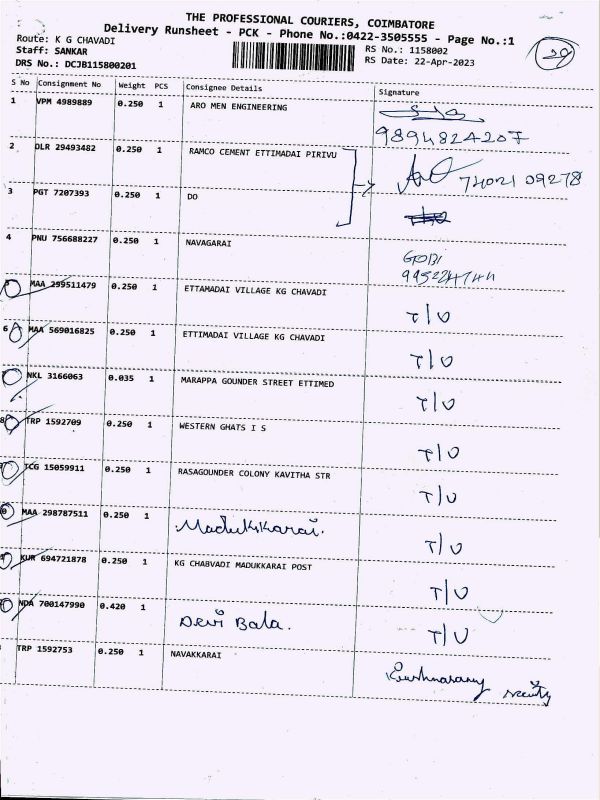 THE PROFESSIONAL COURIERS, COIMBATORE
Delivery Runsheet - PCK - Phone No.:0422-3505555 - Page No.:1
Route: K G CHAVADI
RS No.: 1158002
Staff: SANKAR
RS Date: 22-Apr-2023
DRS No.: DCJB115800201
29
S No Consignment No Weight PCS Consignee Details Signature
1 VPM 4989889 0.250 1 ARO MEN ENGINEERING
9894824207
2 DLR 29493482 0.250 1 RAMCO CEMENT ETTIMADAI PIRIVU
74021 09278
3 PGT 7207393 0.250 1 DO
4 PNU 756688227 0.250 1 NAVAGARAI
GOBI
5 MAA 299511479 0.250 1 ETTAMADAI VILLAGE KG CHAVADI T/O
6 MAA 569016825 0.250 1 ETTIMADAI VILLAGE KG CHAVADI T/O
NKL 3166063 0.035 1 MARAPPA GOUNDER STREET ETTIMED T/O
8 TRP 1592709 0.250 1 WESTERN GHATS I S T/O
TCG 15059911 0.250 1 RASAGOUNDER COLONY KAVITHA STR T/O
0 MAA 298787511 0.250 1 Madukkarai. T/O
KUR 694721878 0.250 1 KG CHABVADI MADUKKARAI POST T/O
NDA 700147990 0.420 1 Devi Bala. T/O
TRP 1592753 0.250 1 NAVAKKARAI